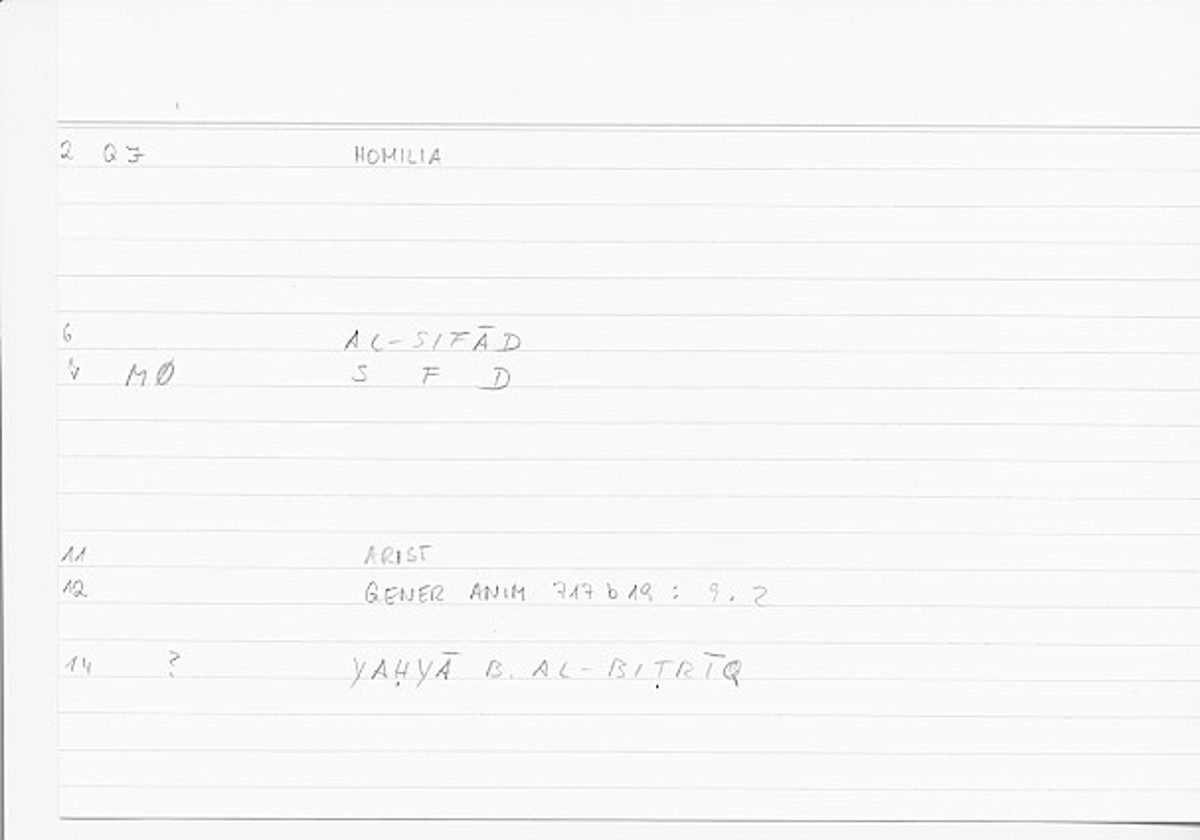 2 QJ HOMILIA
6 AL-SIFĀD
MØ S F D
11 ARIST
12 GENER ANIM 717 b 19 : 9. 2
14 ? YAḤYĀ B. AL-BIṬRĪQ